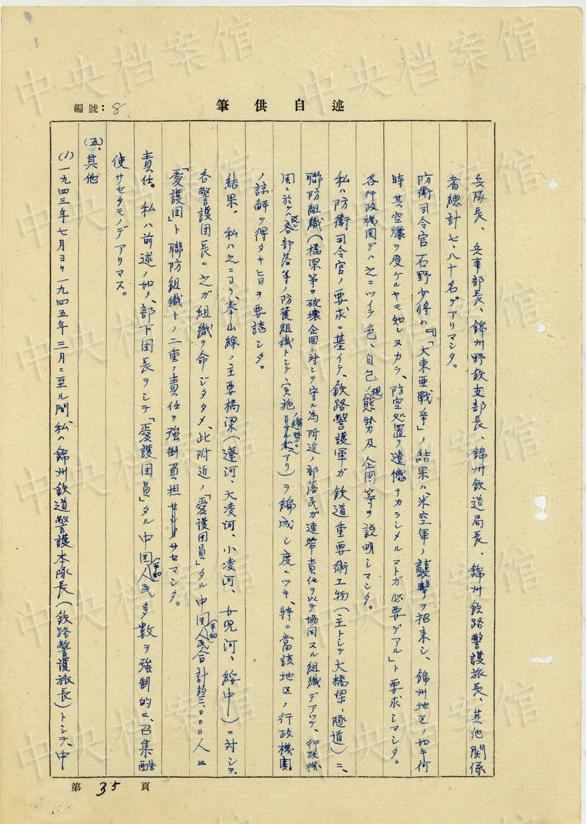 述自供筆
編號：8
兵隊長、兵事部長、錦州野鉄支部長、錦州鉄道局長、錦州鉄路警護旅長、其他関係
者総計七、八十名デアリマシタ。
防衛司令官石野少将ハ「『大東亜戦争』ノ結果ハ米空軍ノ襲撃ヲ招来シ、錦州地区ノ如キ何
時其空爆ヲ受ケルヤモ知レヌカラ、防空処置ノ遺憾ナカランメルコトガ必要デアル」ト要求シマシタ。
各行政機関デハ之ニツイテ色々自己ノ現態勢及企図等ヲ説明シマシタ。
私ハ防衛司令官ノ要求ニ基イテ、鉄路警護軍ガ鉄道重要術工物（主トシテ大橋梁、隧道）ニ、
聯防組織（橋梁等ヲ破壊企図ニ対シテ守ル為附近ノ部落民ガ連帯責任ヲ以テ協同スル組織デアツテ、行政機
関ニ於テハ各部落等ノ防護組織トシテ実施シテアリ）ヲ編成シ度ニツキ、特ニ当該地区ノ行政機関
ノ諒解ヲ得タキ旨ヲ要請シタ。
結果、私ハ之ニヨリ、奉山線ノ主要橋梁（遼河、大凌河、小凌河、女児河、綏中）ニ対シテ、
各警護団長ニ之ガ組織ヲ命ジタタメ、此附近ノ「愛護団員」タル中国（平和）人民合計約三、〇〇〇人ニ
「愛護団」ト聯防組織トノ二重ノ責任ヲ強制負担サセマシタ。
責任。私ハ前述ノ如ク、部下団長ヲシテ「愛護団員」タル中国（平和）人民多数ヲ強制的ニ召集酷
使サセタモノデアリマス。
(五)其他
(1)一九四三年七月ヨリ一九四五年三月ニ至ル間、私ハ錦州鉄道警護本隊長（鉄路警護旅長）トシテ、中
第 35 頁
中央档案馆